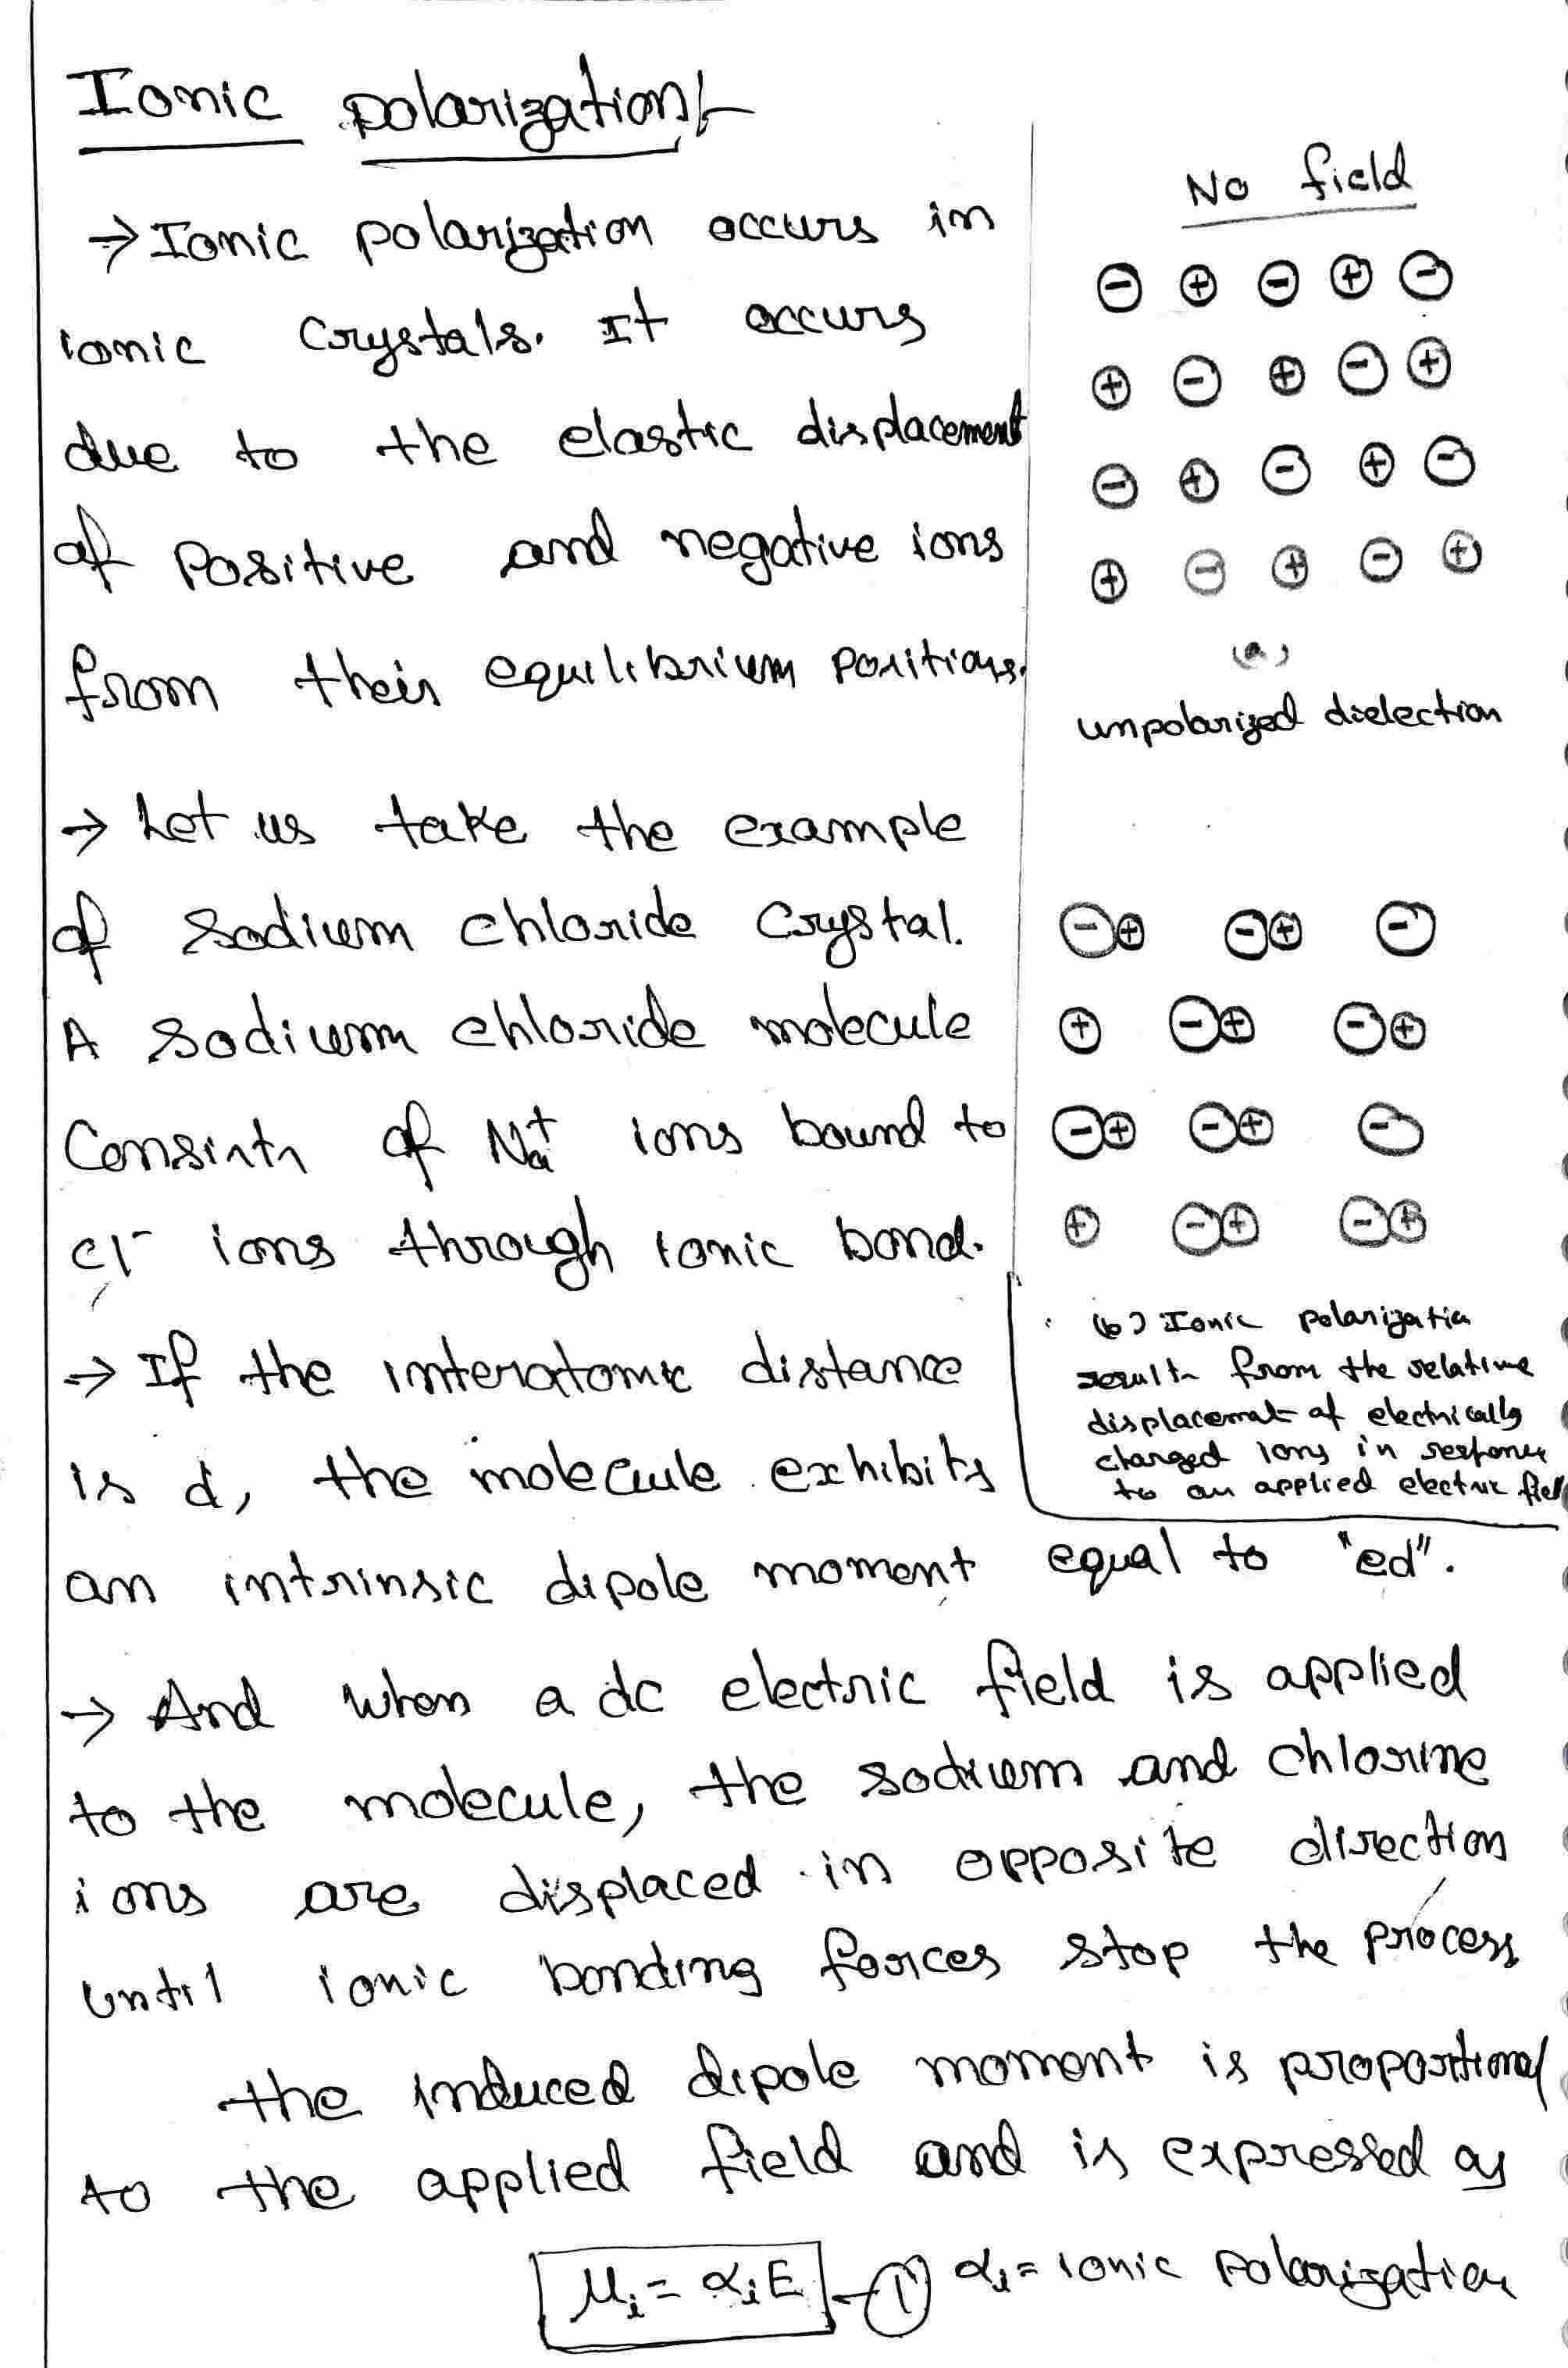 Ionic polarization:-
→ Ionic polarization occurs in
ionic crystals. It occurs
due to the elastic displacement
of Positive and negative ions
from their equilibrium positions.
→ Let us take the example
of sodium chloride crystal.
A sodium chloride molecule
Consists of Na⁺ ions bound to
Cl⁻ ions through ionic bond.
→ If the interatomic distance
is d, the molecule exhibits
an intrinsic dipole moment equal to "ed".
→ And when a dc electric field is applied
to the molecule, the sodium and chlorine
ions are displaced in opposite direction
until ionic bonding forces stop the process
the induced dipole moment is proportional
to the applied field and is expressed as
μᵢ = αᵢE — ① αᵢ = ionic polarization
No field
⊖ ⊕ ⊖ ⊕ ⊖
⊕ ⊖ ⊕ ⊖ ⊕
⊖ ⊕ ⊖ ⊕ ⊖
⊕ ⊖ ⊕ ⊖ ⊕
(a)
unpolarized dielection
⊖⊕ ⊖⊕ ⊖
⊕ ⊖⊕ ⊖⊕
⊖⊕ ⊖⊕ ⊖
⊕ ⊖⊕ ⊖⊕
(b) Ionic polarizatin
results from the relative
displacemat of electrically
charged ions in response
to an applied electric field